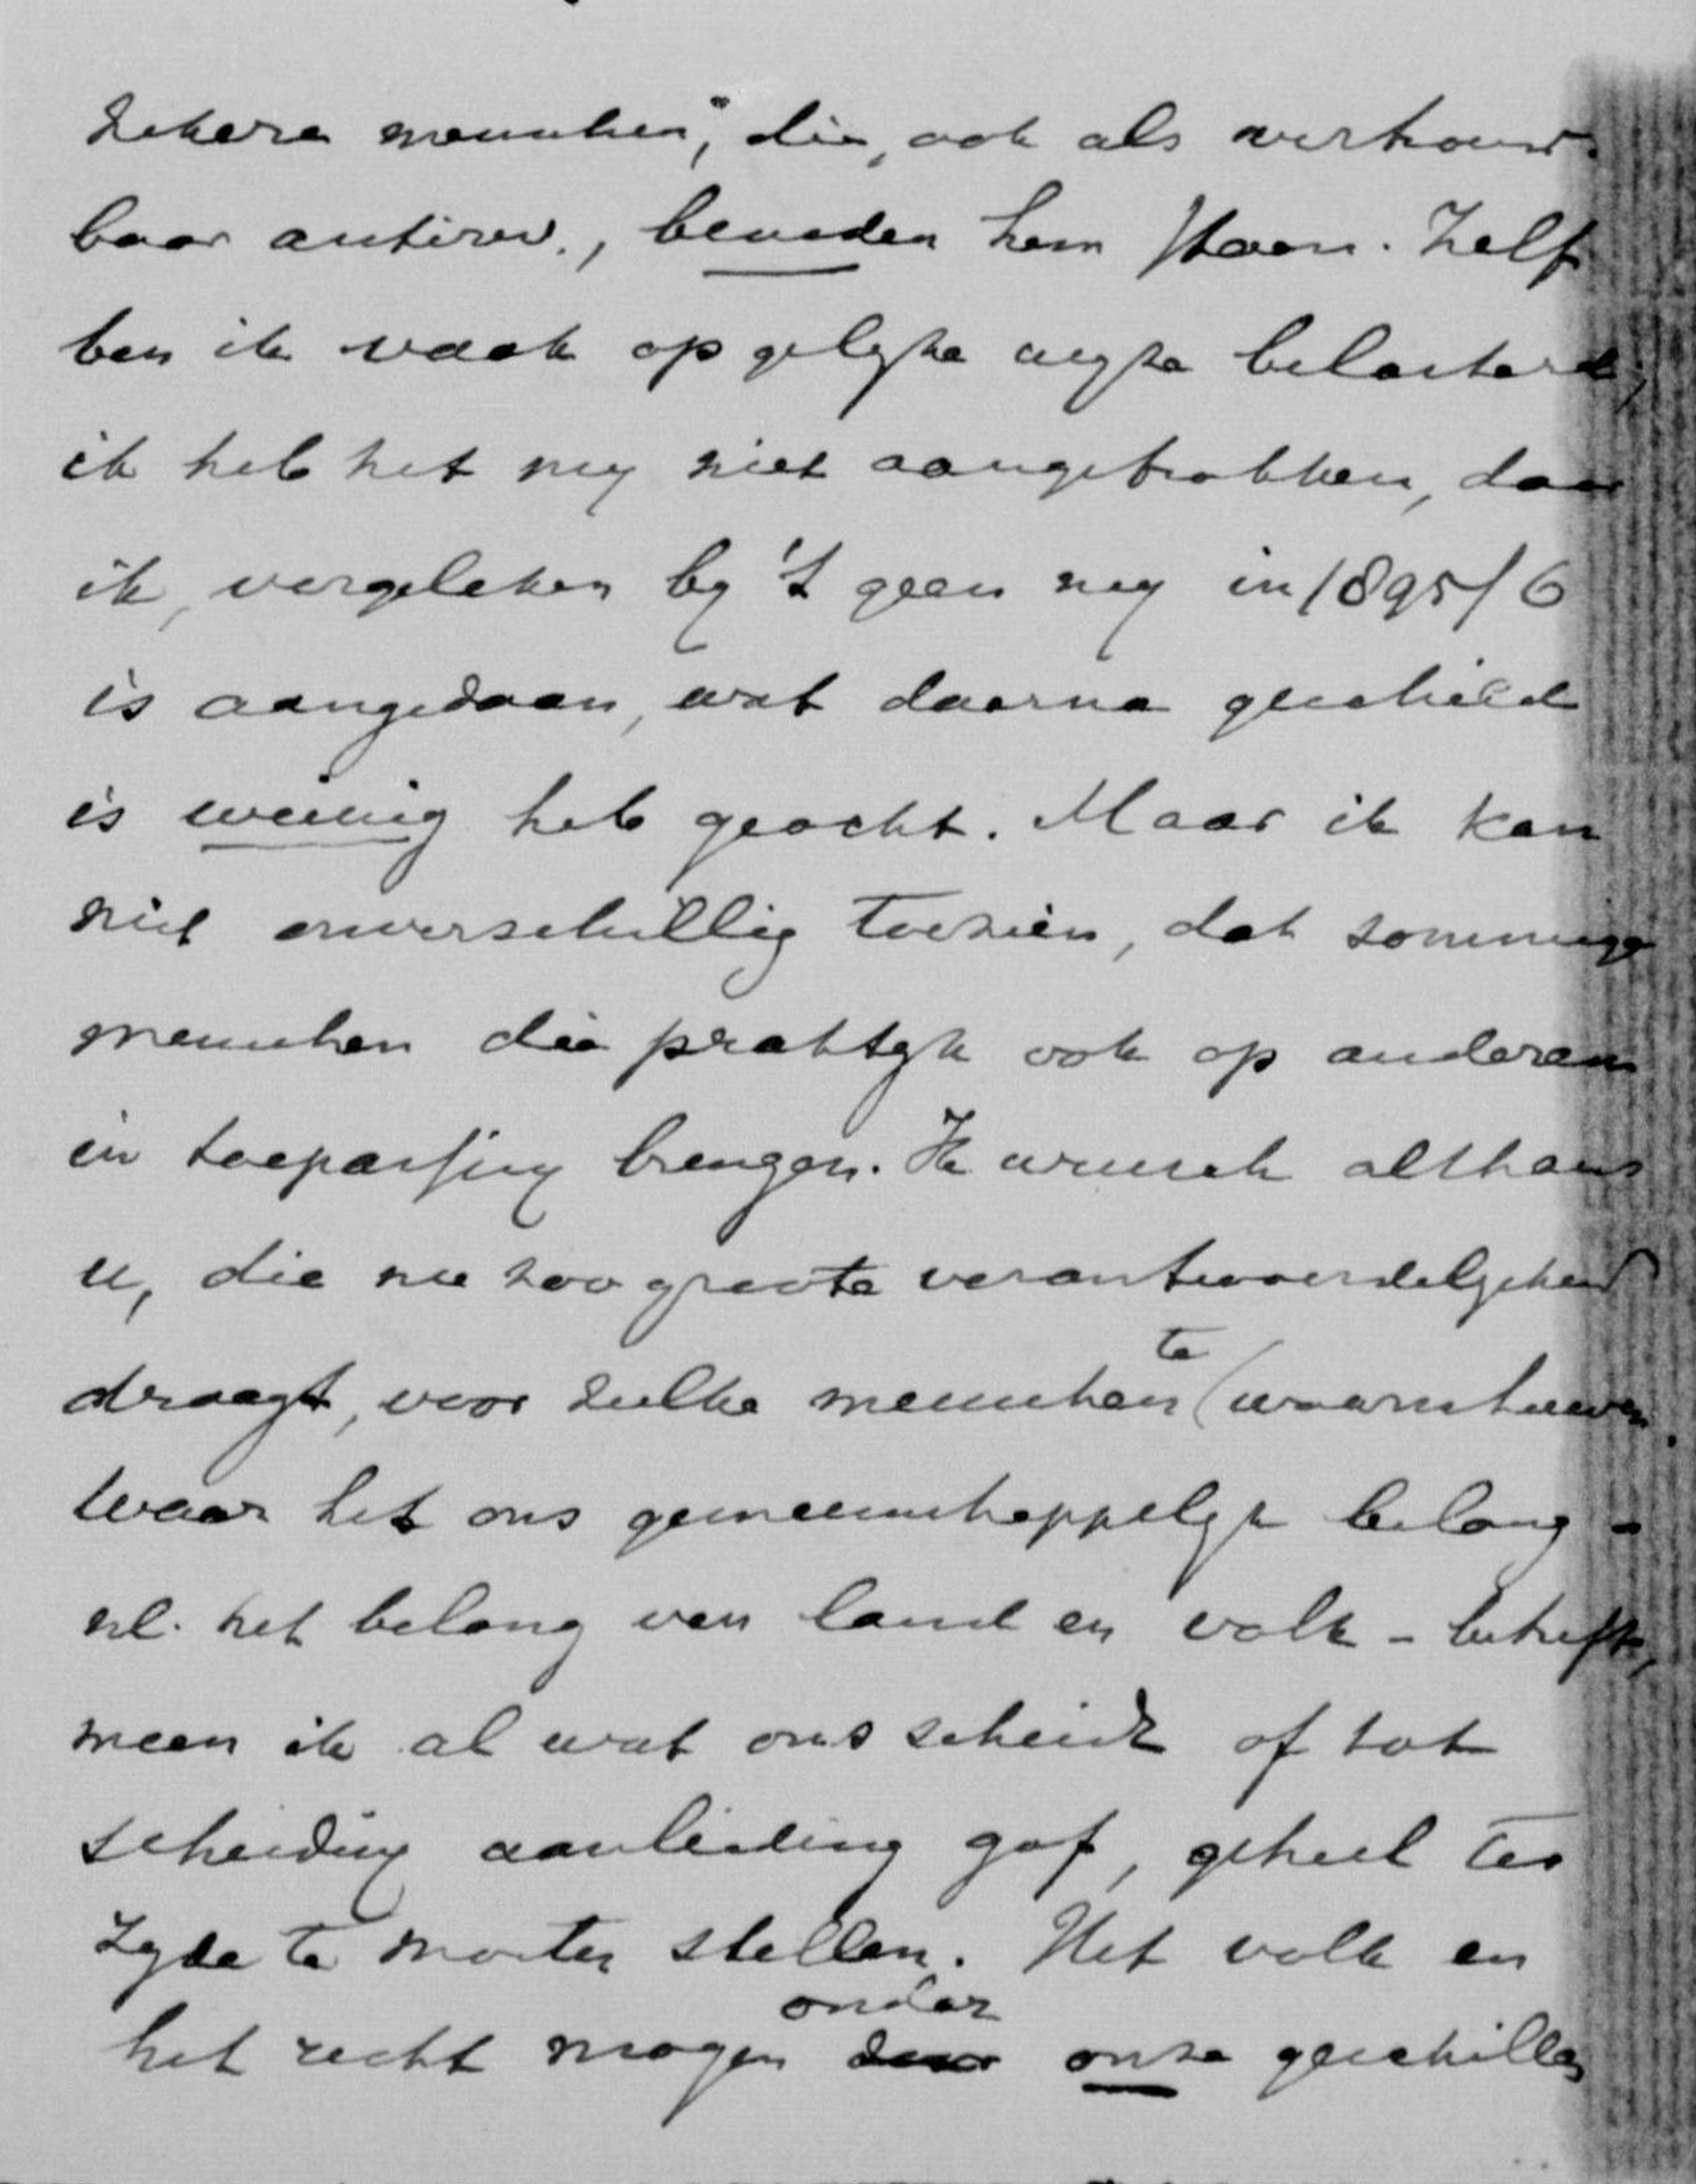 zekere menschen", die, ook als vertrouw-
baar antirev., beneden hem staan. Zelf
ben ik vaak op gelijke wijze belasterd;
ik heb het mij niet aangetrokken, daar
ik, vergeleken bij 't geen mij in 1895/6
is aangedaan, wat daarna geschied
is weinig heb geacht. Maar ik kan
niet onverschillig toezien, dat sommige
menschen die praktijk ook op anderen
in toepassing brengen. Ik wensch althans
u, die nu zoo groote verantwoordelijkheid
draagt, voor zulke menschen te waarschuwen.
Waar het ons gemeenschappelijk belang -
nl. het belang van land en volk - betreft,
meen ik al wat ons scheidt of tot
scheiding aanleiding gaf, geheel ter
zijde te moeten stellen. Het volk en
het recht mogen door onder onze geschillen